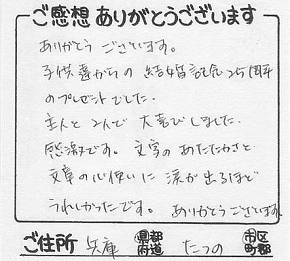 ご感想 ありがとうございます
ありがとう ございます。
子供達からの 結婚記念25周年
のプレゼントでした。
主人と 2人で 大喜びしました。
感激です。 文字の あたたかさと
文章の心使いに 涙が出るほど
うれしかったです。 ありがとうございます
ご住所 兵庫 都道府県 たつの 市区町郡